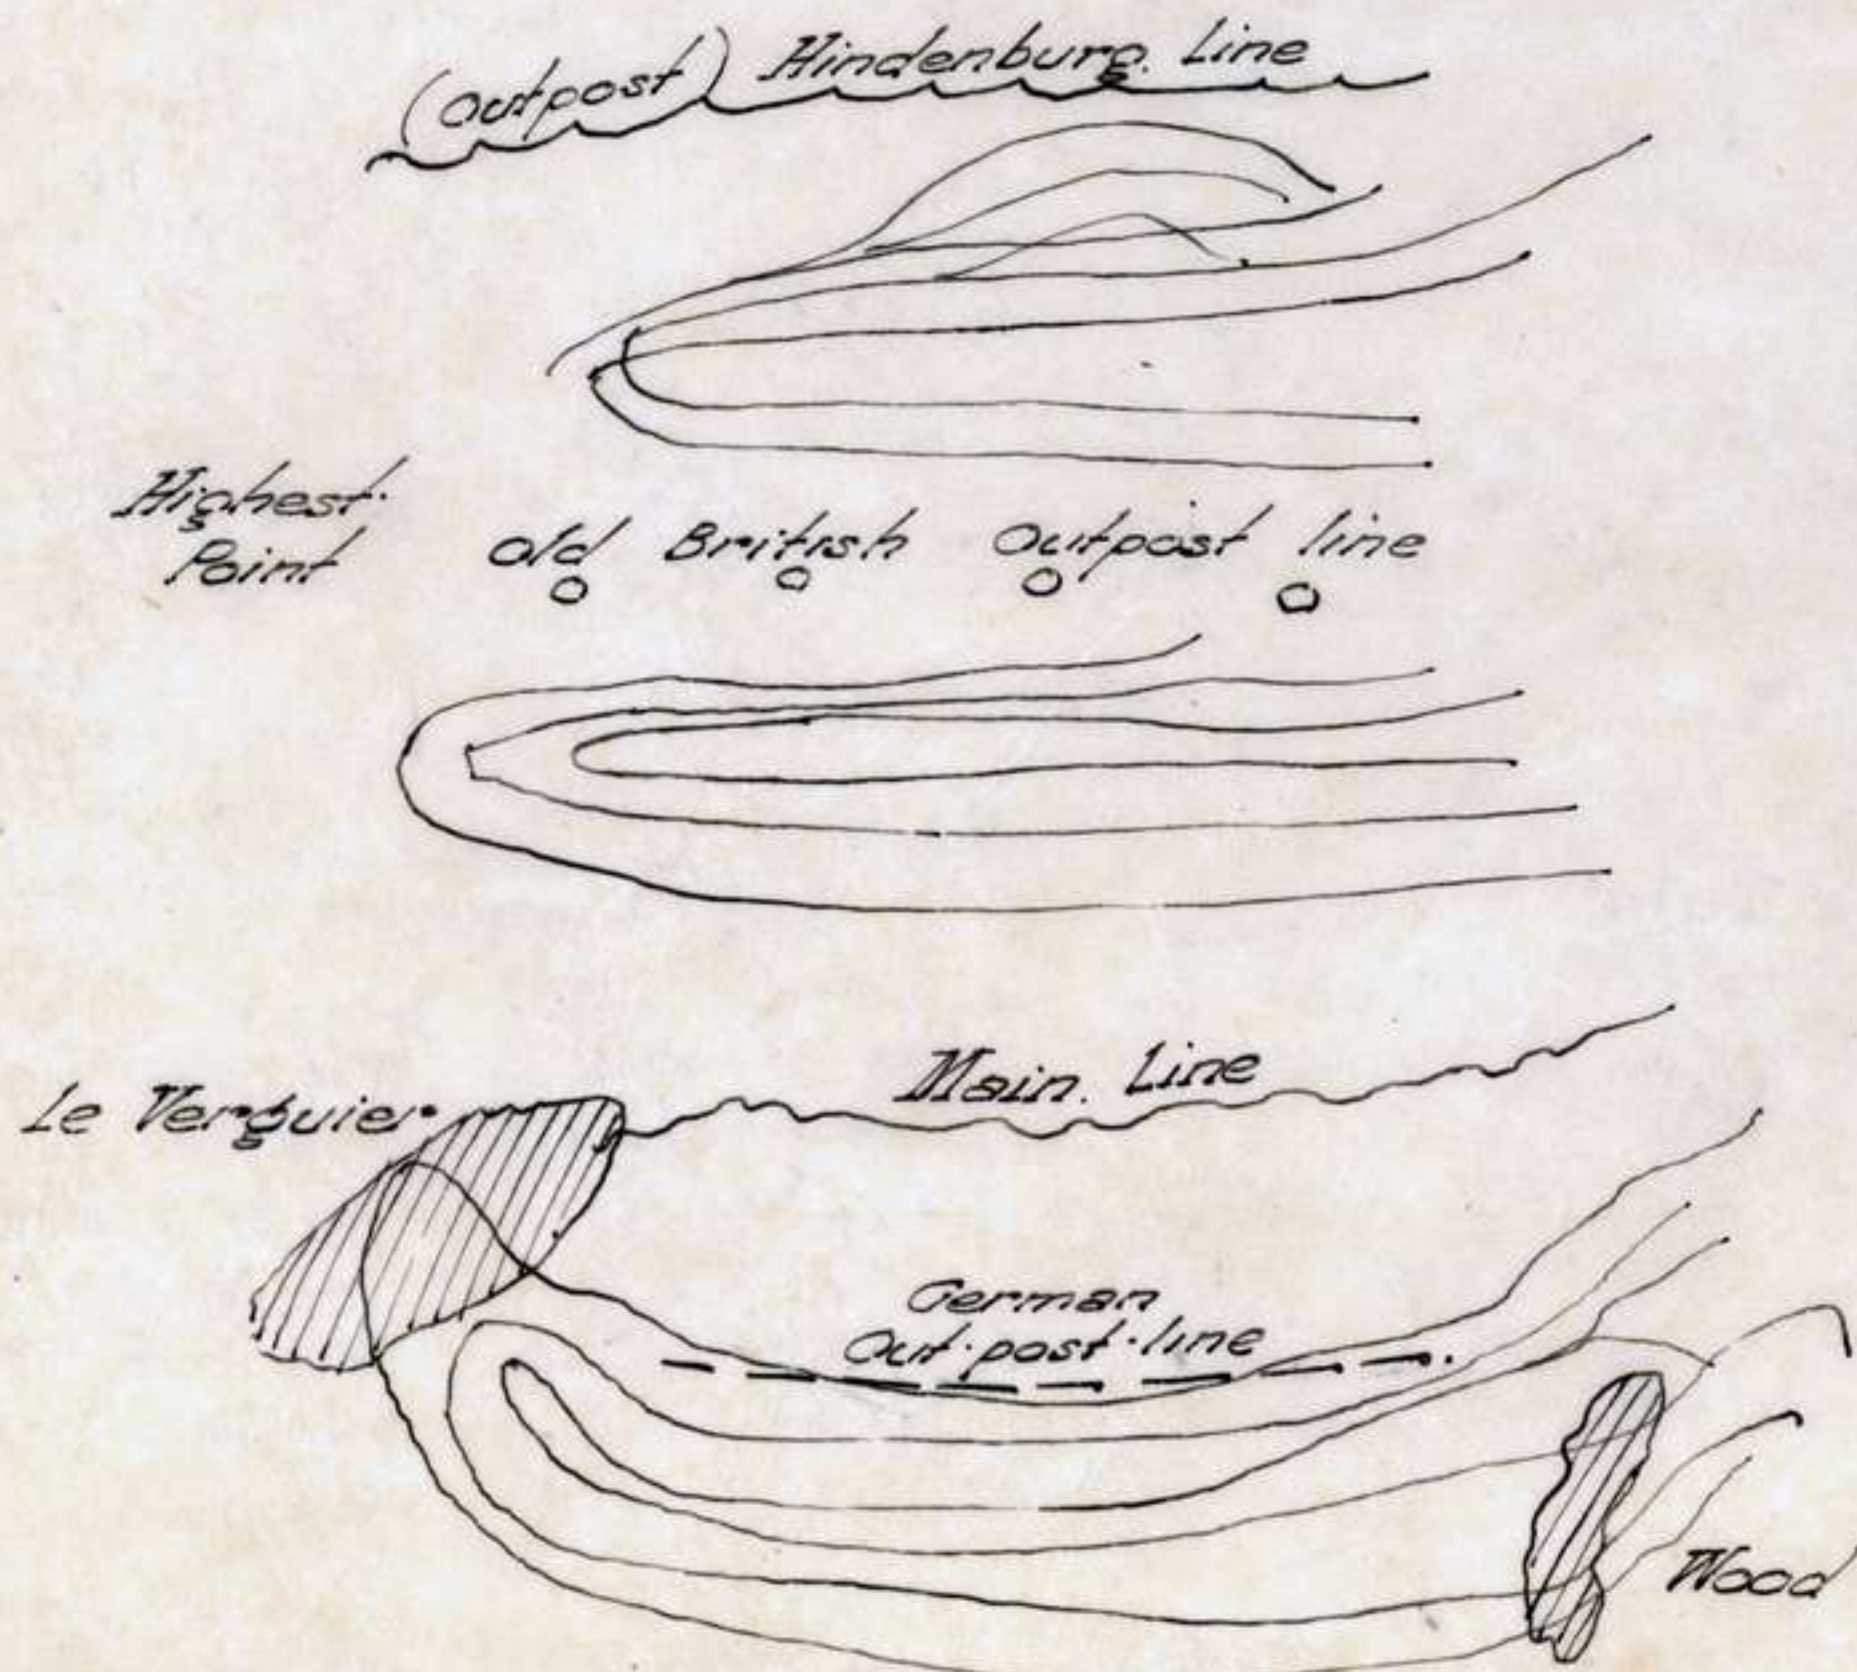 (Outpost) Hindenburg. Line
Highest.
Point
Old British Outpost line
Main. Line
Le Verguier
German
Out.post.line
Wood